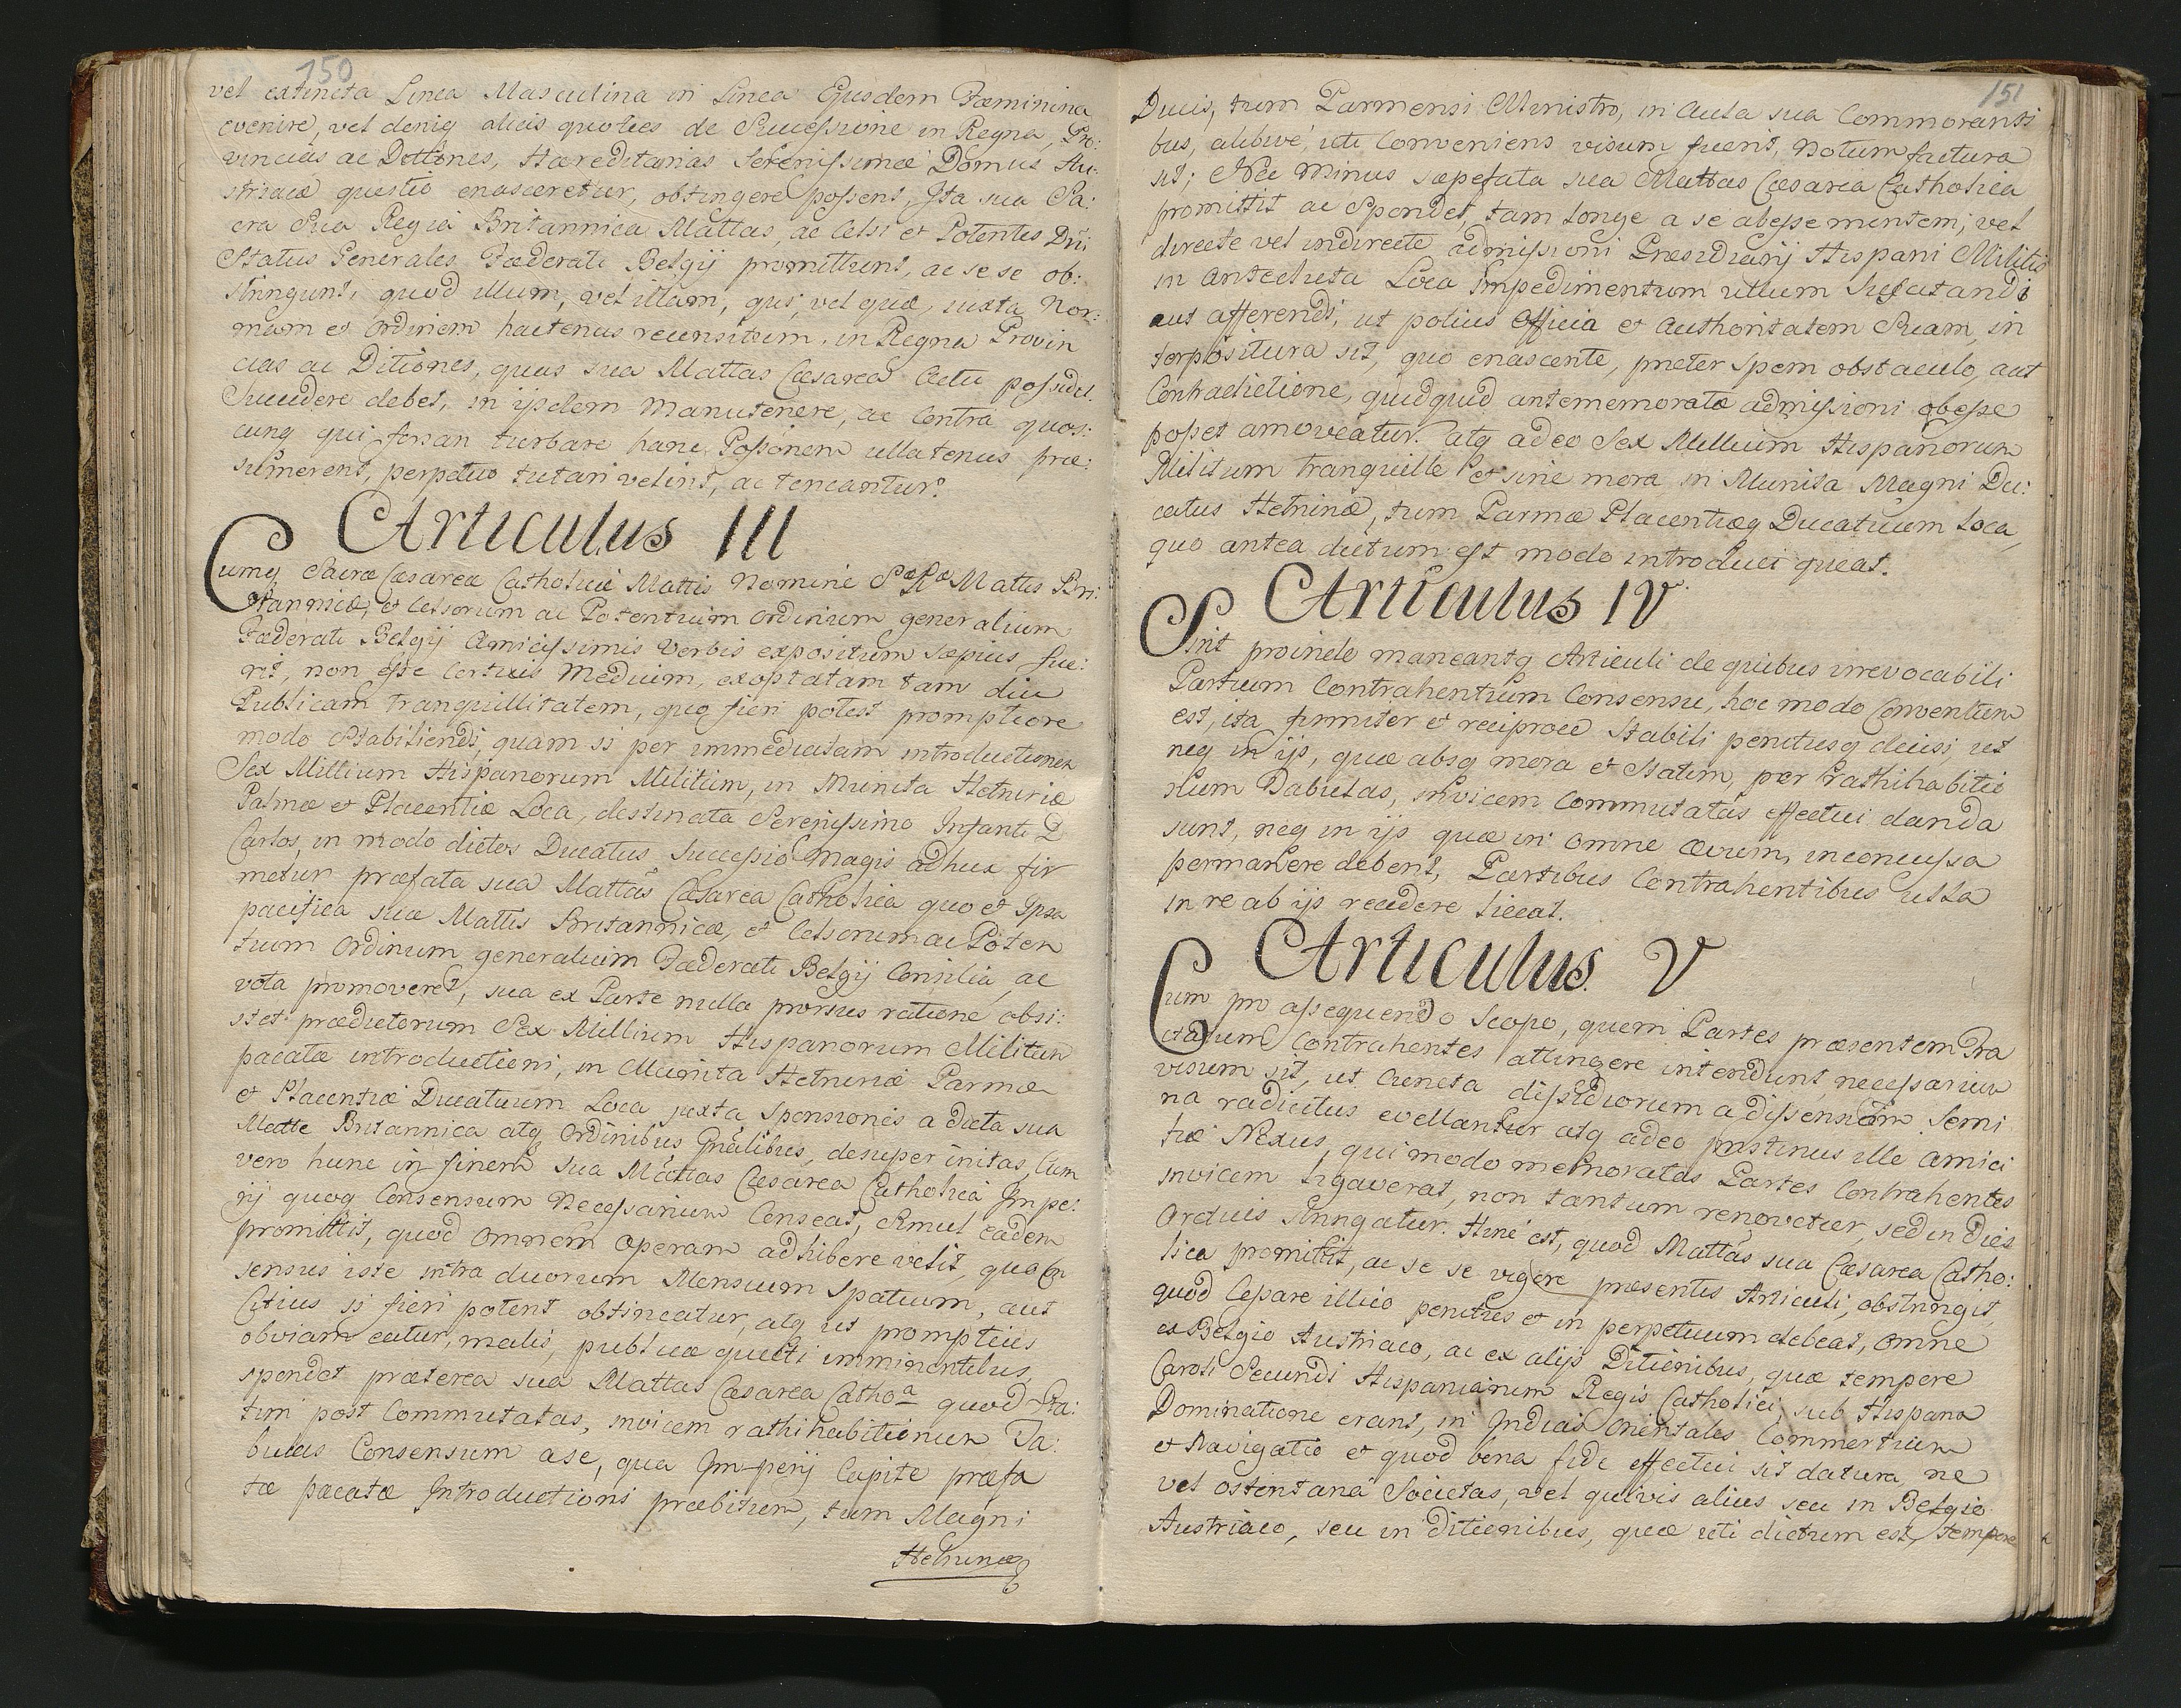 150
vel extincta Linea Masculina in Linea Ejusdem Fæminina
evenire, vel deniq alias quoties de Successione in Regna, Pro:
vincias ac Dittiones, Hæreditarias Serenissimæ Domus Au:
striacæ questio enasceretur, obtingere possent, Ita sua Sa:
cra Sua Regia Britannica Mattas, ac Celsi et Potentes Dni
Status Generales Fæderati Belgij promittunt, ac se se ob:
stringunt, quod illum, vel illam, qui, vel quæ, iuxta Nor:
mam et Ordinem hactenus recensitum, in Regna Provin
cias ac Ditiones, quas sua Mattas Cæsarea Actu possidet.
Succedere debet, in ijsdem Manutenere, ac Contra quos:
cunq qui forsan turbare hanc Possonem ullatenus præ:
sumerent, perpetuo tutari velint, ac teneantur.
Articulus III
Cumq Sacræ Cæsareæ Catholicæ Mattis Nomine Sæ Ræ Mattis Bri:
tannicæ, et Celsorum ac Potentium Ordinum generalium
Fæderati Belgij Amicissimis Verbis expositum sæpius fue:
rit, non esse Certius Medium, exoptatam tam diu
Publicam tranquillitatem, quo fieri potest promptiore
modo stabiliendi, quam si per immediatam introductionem
Sex Millium Hispanorum Militum, in Munita Hetruriæ
Palmæ et Placentiæ Loca, destinata Serenissimo Infanti D
Carlos, in modo dictos Ducatus Successio Magis adhuc fir
metur præfata sua Mattas Cæsarea Catholica quo et Ipsa
pacifica suæ Mattis Britannicæ, et Celsorum ac Poten
tium Ordinum generalium Fæderati Belgij Consilia, ac
vota promoveret, sua ex Parte nulla prorsus ratione obsi:
stet prædictorum Sex Millium Hispanorum Militum
pacatæ introductioni, in Munita Hetruriæ Parmæ
et Placentiæ Ducatuum Loca juxta Sponsiones a dicta sua
Matte Britannica atq Ordinibus Gnalibus, desuper initas, Cum
vero hunc in finem sua Mattas Cæsarea Catholica, Impe:
rij quoq Consensum Necessarium Censeat, Simul eadem
promittit, quod Omnem Operam adhibere velit, quo Con
sensus iste intra duorum Mensium Spatium, aut
Citius si fieri potent obtineatur, atq ut promptius
obviam eatur, malis, publicæ quieti imminentibus,
spondet præterea sua Mattas Cæsarea Cathoa quod Sta:
tim post Commutatas, invicem rathihabitionum Ta:
bulas Consensum a se, qua Imperij Capite præfa
tæ pacatæ Introductioni præbitum, tum Magni
Hetruriæ
151
Ducis, tum Parmensi Ministro, in Aula sua Commoranti
bus, alibive, uti Conveniens visum fuerit, Notum factura
sit; Nec Minus sæpefata sua Mattas Cæsarea Catholica
promittit ac Spondet, tam Longe a se abesse mentem; vel
directe vel indirecte admissioni Præsidiarij Hispani Militis
in antedicta Loca Impedimentum ullum Suscitandi
aut afferendi, ut potius Officia et Authoritatem Suam, in
terpositura sit, quo enascente, præter Spem obstaculo, aut
Contradictione, quidquid antememoratæ admissioni obesse
posset amoveatur. atq adeo Sex Millium Hispanorum
Militum tranquille et sine mora in Munita Magni Du:
catus Hetruriæ, tum Parmæ Placentiæq Ducatuum Loca,
quo antea dictum est modo introduci queat.
Articulus IV
Sint proinde maneantq Articuli de quibus irrevocabili
Partium Contrahentium Consensu, hoc modo Conventum
est, ita firmiter et reciproce Stabili penitusq decisi, ut
neq in ijs, quæ absq mora et Statim, per rathihabitio
num Tabulas, invicem Commutatas effectui danda
sunt, neq in ijs quæ in Omne ævum, inconcussa
permanere debent, Partibus Contrahentibus ulla
in re ab ijs recedere liceat.
Articulus V
Cum pro assequendo Scopo, quem Partes præsentem Tra
ctatum Contrahentes attingere intendunt, necessarium
visum sit, ut Cuncta dissidiorum a dissensium Semi
na radicitus evellantur atq adeo pristinus ille amici
tiæ Nexus, qui modo memoratas Partes Contrahentes
invicem ligaverat, non tantum renovetur, sed in Dies
Arctius Stringatur. Hinc est, quod Mattas sua Cæsarea Catho:
lica promittit, ac se se vigore præsentis Articuli, obstringit
quod Cessare illico penitus et in perpetuum debeat, Omne
ex Belgio Austriaco, ac ex alijs Ditionibus, quæ tempore
Caroli Secundi Hispaniarum Regis Catholici, sub Hispana
Dominatione erant, in Indias Orientales Commertium
et Navigatio et quod bona fide effectui sit datura, ne
vel ostentana Societas, vel quivis alius seu in Belgio
Austriaco, seu in ditionibus, quæ uti dictum est, tempore